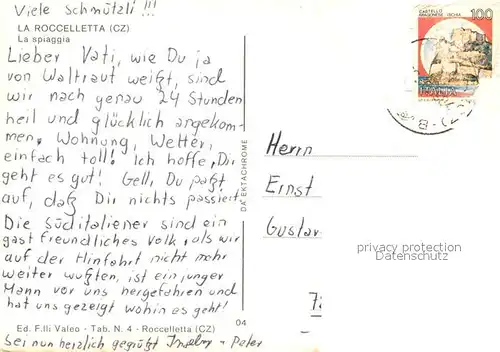 Viele Schmützli!!!
LA ROCCELLETTA (CZ)
La spiaggia
Lieber Vati, wie Du ja
von Waltraut weißt, sind
wir nach genau 24 Stunden
heil und glücklich angekom-
men. Wohnung, Wetter,
einfach toll! Ich hoffe, Dir
geht es gut! Gell, Du paßt
auf, daß Dir nichts passiert.
Die Süditaliener sind ein
gastfreundliches Volk, als wir
auf der Hinfahrt nicht mehr
weiter wußten, ist ein junger
Mann vor uns hergefahren und
hat uns gezeigt wohin es geht!
Ed. F.lli Valeo - Tab. N. 4 - Roccelletta (CZ)
04
Sei nun herzlich gegrüßt Ingeborg + Peter
DA EKTACHROME
CASTELLO
ARAGONESE ISCHIA
100
Herrn
Ernst
Gustav
privacy protection
Datenschutz